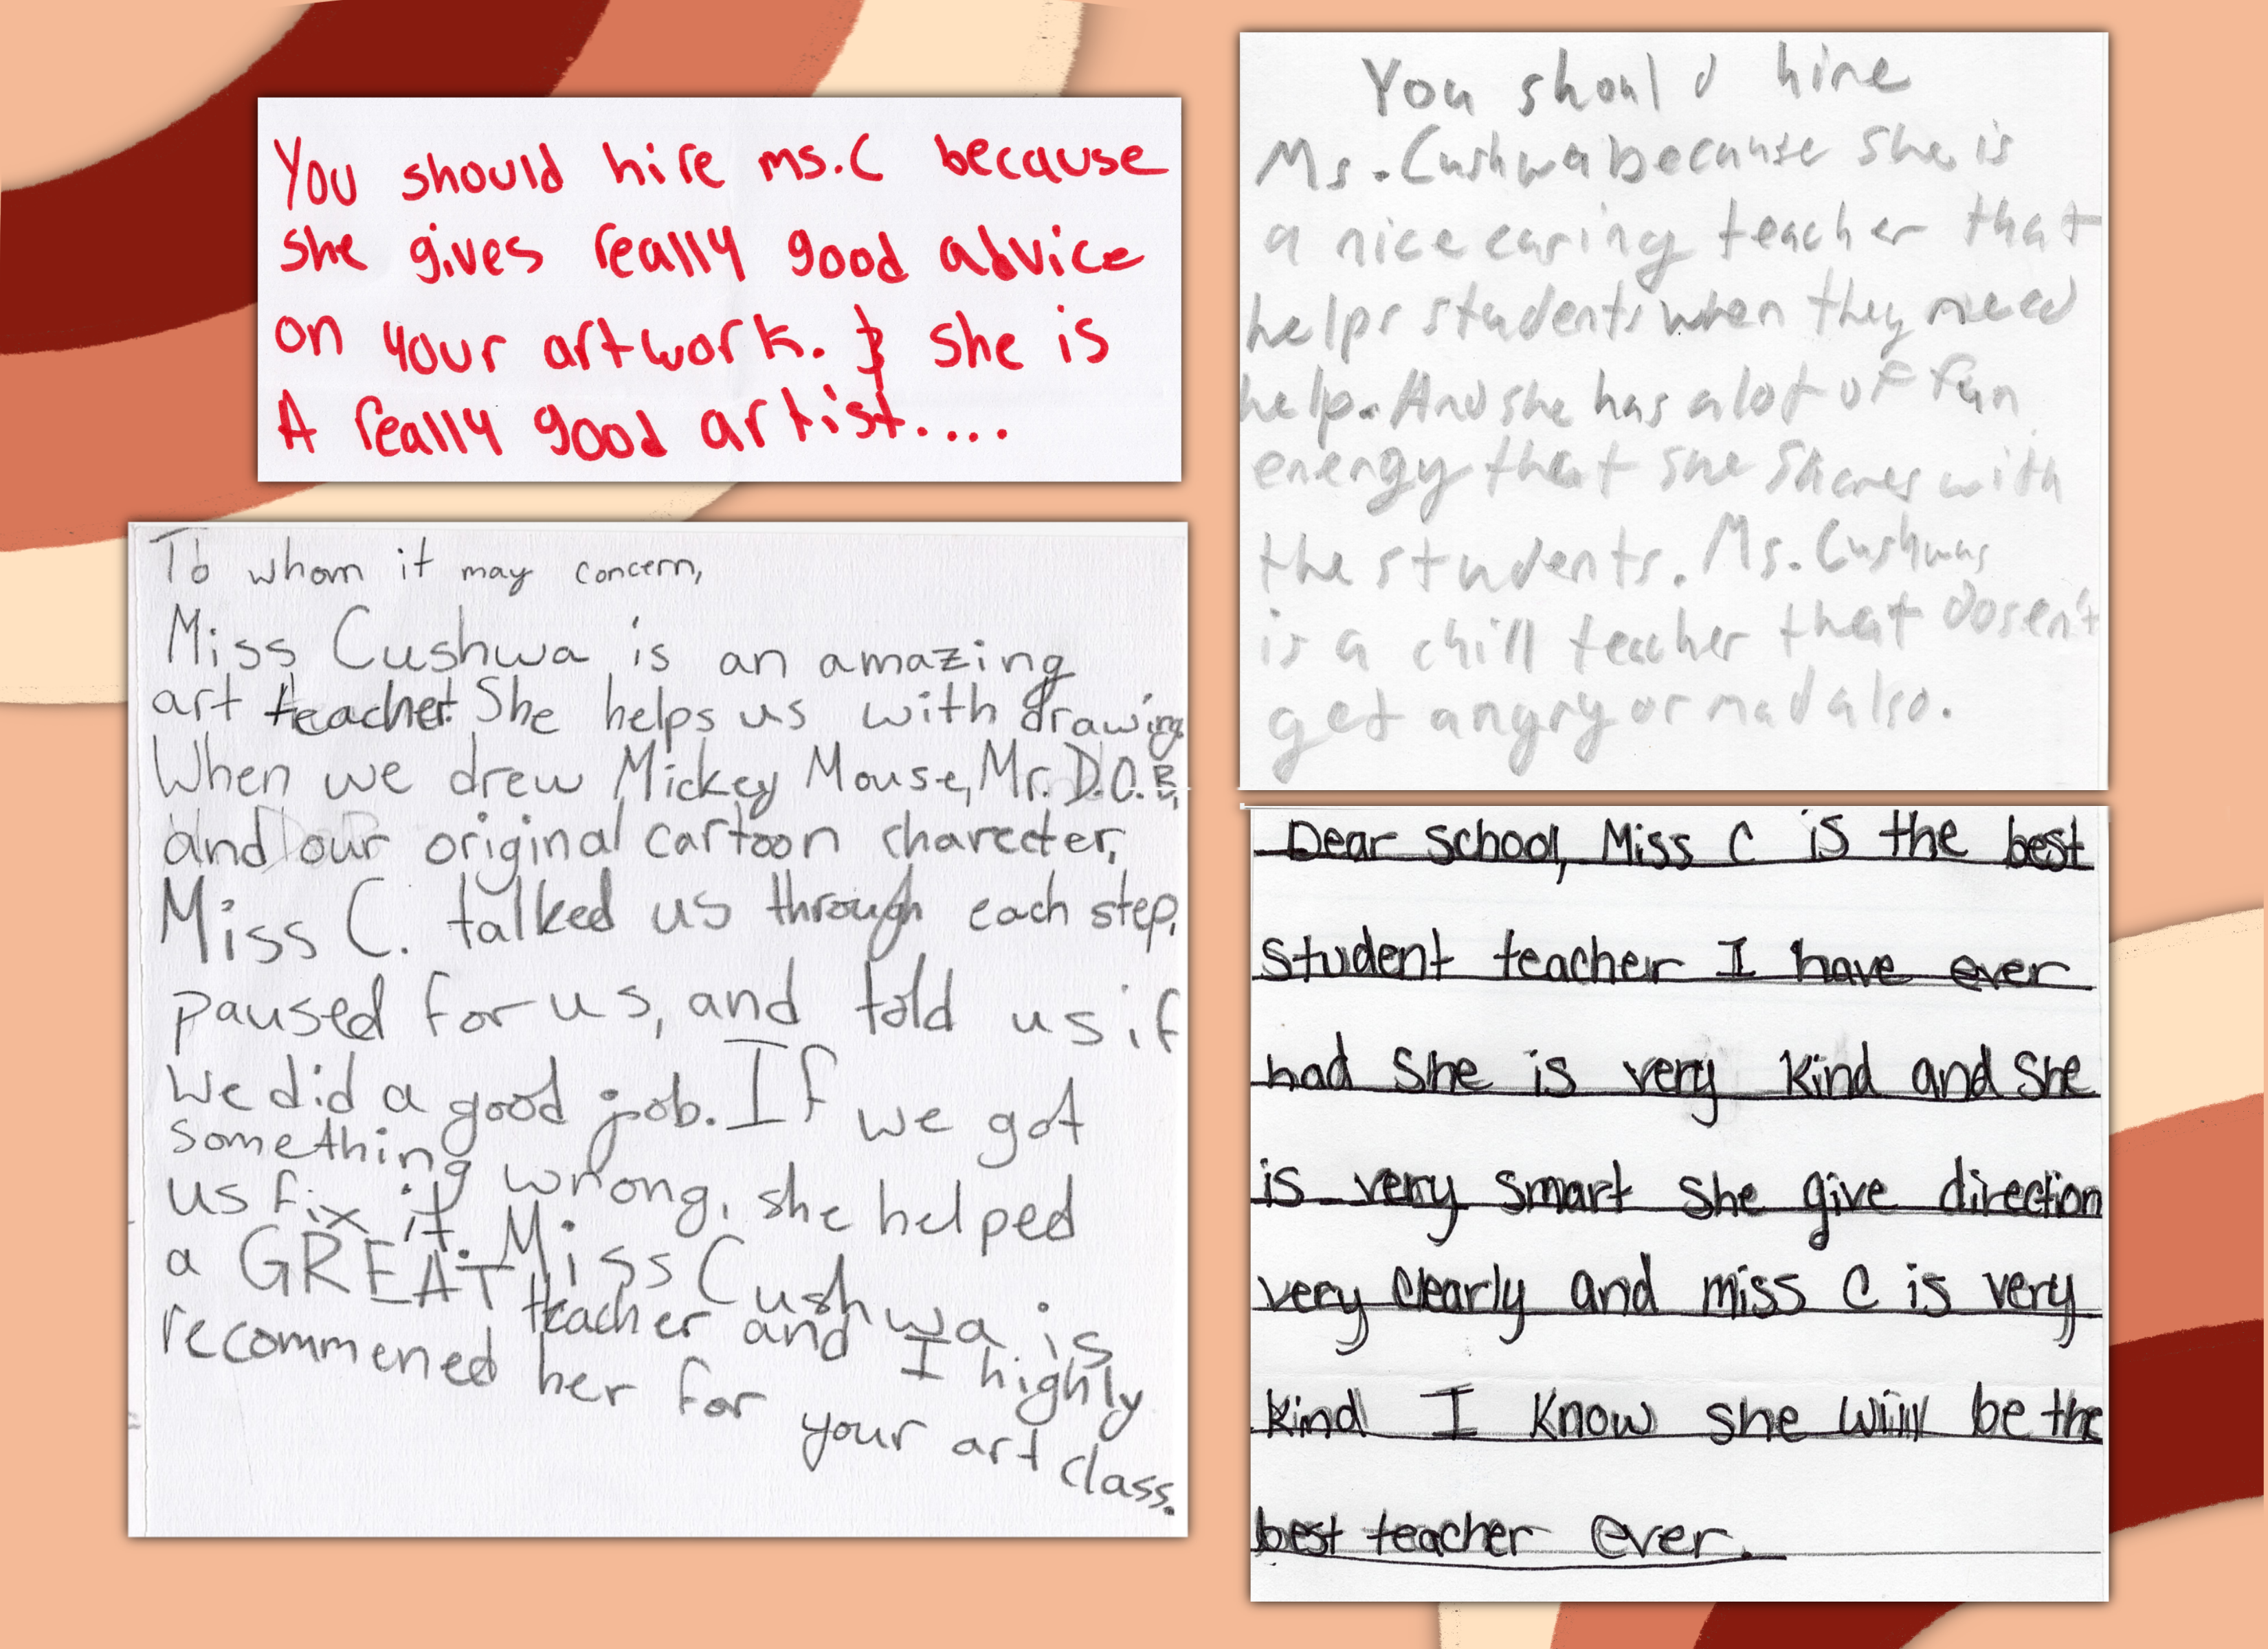 You should hire ms.C because
she gives really good advice
on your artwork. & she is
A really good artist....
To whom it may concern,
Miss Cushwa is an amazing
art teacher! She helps us with drawing.
When we drew Mickey Mouse, Mr. D.O.B,
and our original cartoon charecter,
Miss C. talked us through each step,
paused for us, and told us if
we did a good job. If we got
something wrong, she helped
us fix it. Miss Cushwa is
a GREAT teacher and I highly
recommened her for your art class.
You should hire
Ms. Cushwa because she is
a nice caring teacher that
helps students when they need
help. And she has alot of fun
energy that she shares with
the students. Ms. Cushwas
is a chill teacher that dosen't
get angry or mad also.
Dear school, Miss C is the best
student teacher I have ever
had She is very kind and she
is very smart she give direction
very clearly and miss C is very
kind I know she will be the
best teacher ever.